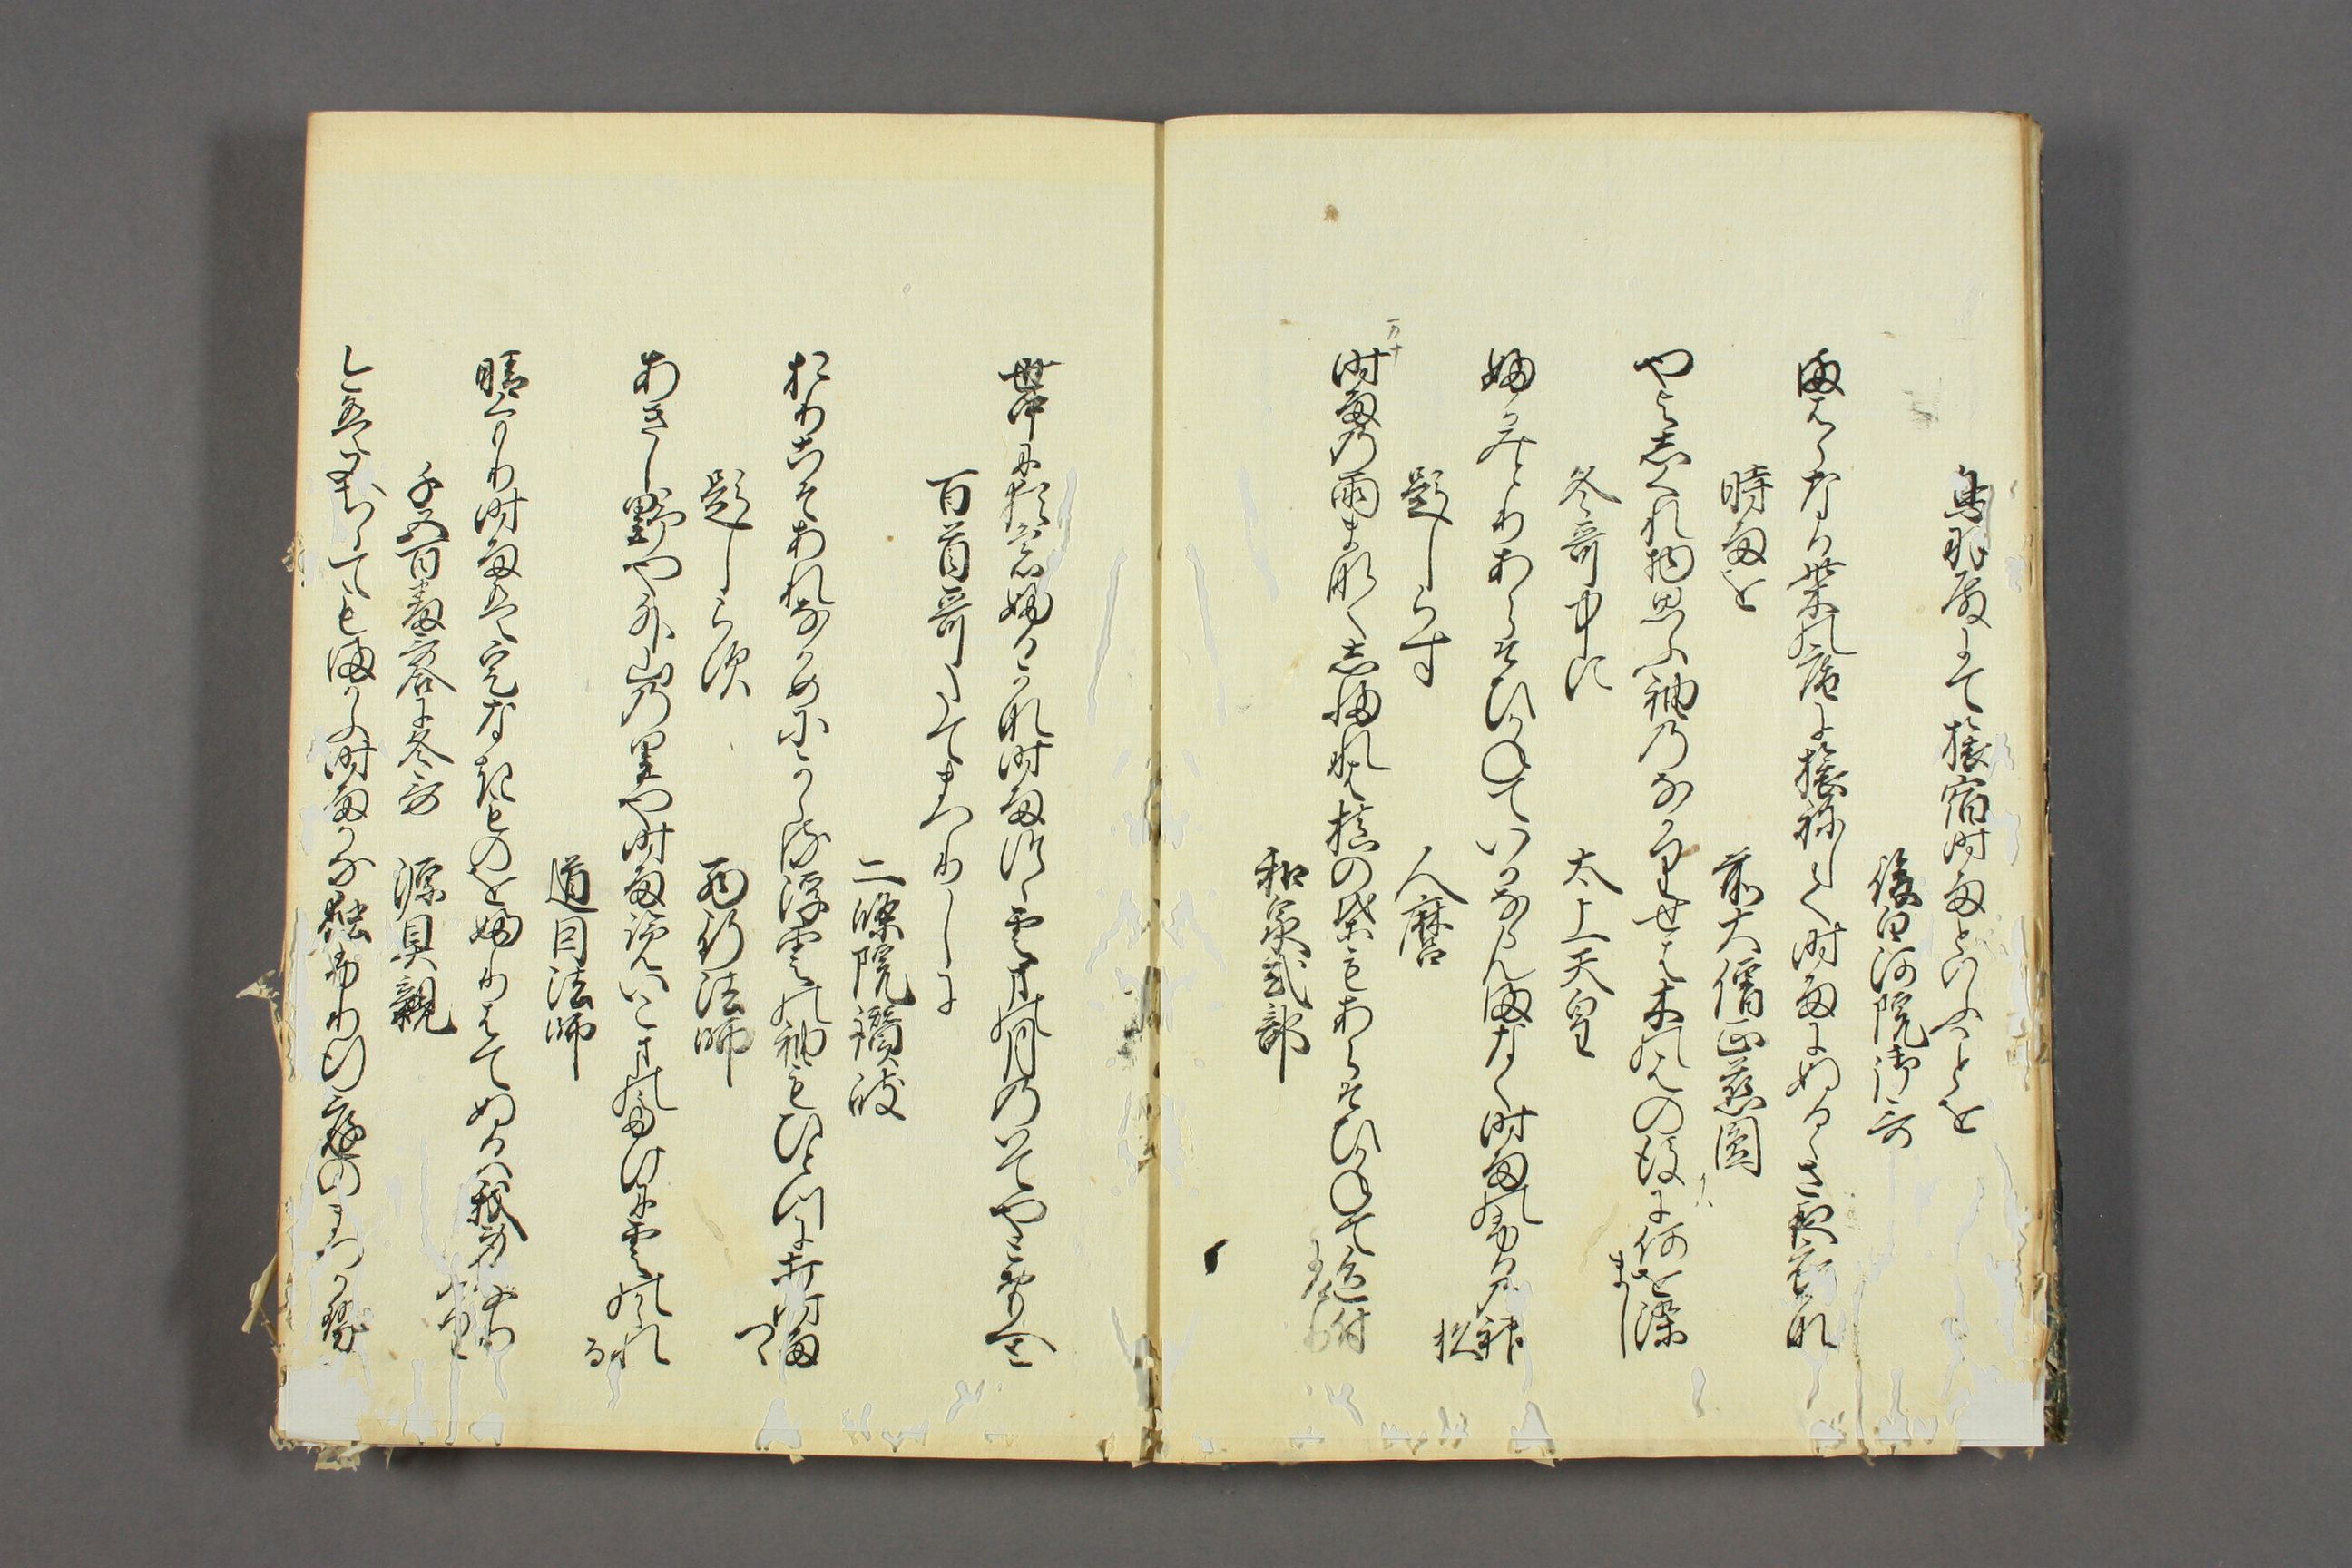 鳥羽殿にて旅宿時雨といふことを
後白河院御哥
満はらなる柴の庵に旅祢して時雨にぬるゝさ夜衣哉
時雨を
前大僧正慈圓
やよ志くれ物思ふ袖のなかりせは木の葉の後に何を染まし
冬哥中に
太上天皇
婦かみとりあらそひかねていかならん満なく時雨のふるの神杉
題しらす
人麿
万十
時雨の雨まなく志ふれは槙の葉もあらそひかねて色付にけり
和泉式部
世中に猶もふるかな時雨つゝ雲まの月のいてやと思へと
百首哥たてまつりしに
二條院讃岐
おりこそあれなかめにかゝる浮雲の袖もひとつに打時雨つゝ
題しら須
西行法師
あきしの野や外山の里や時雨覧いこまの嵩に雲のかゝれる
道因法師
晴くもり時雨は定なきものを婦りはてぬるは我身なりけり
千五百番哥合に冬哥
源具親
いまは又ちらても満かふ時雨かな獨ふり行庭のまつかせ